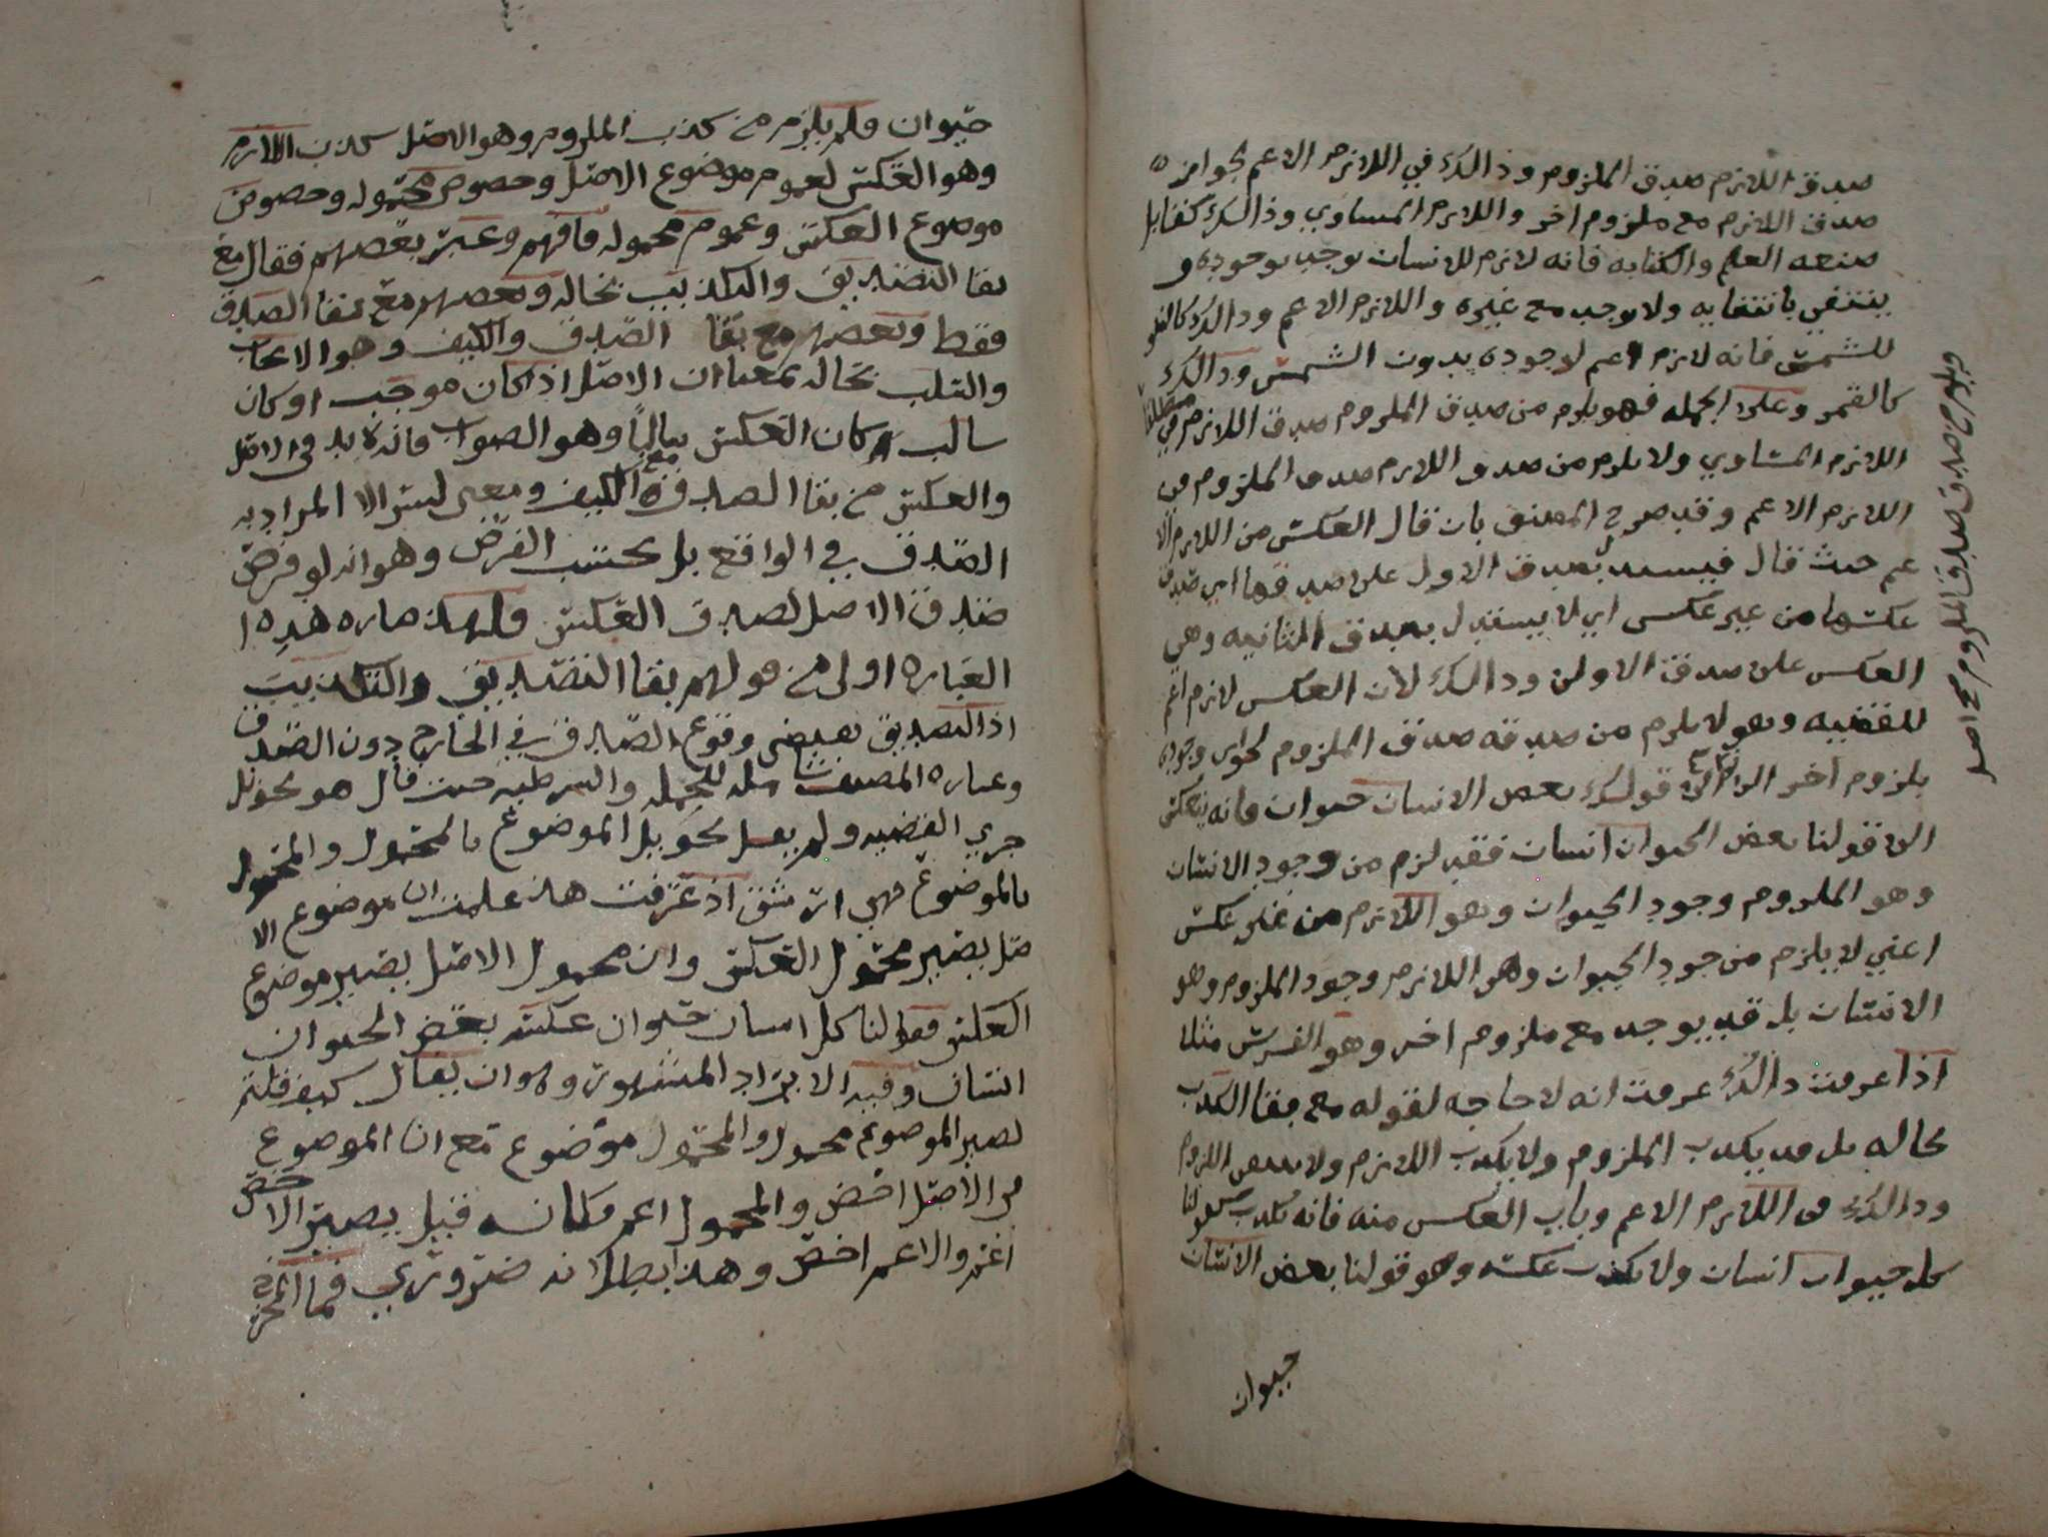 صدق اللازم صدق الملزوم وذالك في اللازم الاعم لجواز
صدق اللازم مع ملزوم اخر واللازم المساوي وذالك كقابل
صنعه العلم والكتابه فانه لازم للانسان يوجد بوجوده و
ينتفي بانتفايه ولا يوجد مع غيره واللازم الاعم وذالك كالضو
للشمس فانه لازم اعم لوجوده بدون الشمس وذالك
كالقمر وعلى الجمله فهو يلزم من صدق الملزوم صدق اللازم مطلقا في
اللازم المساوي ولا يلزم من صدق اللازم صدق الملزوم في
اللازم الاعم وقد صرح المصنف بان قال العكس من اللازم الا
عم حيث قال فيستدل بصدق الاول على صدقها اي صدق
عكسها من غير عكس اي لا يستدل بصدق الثانيه وهي
العكس على صدق الاولى وذالك لان العكس لازم اعم
للقضيه وهو لا يلزم من صدقه صدق الملزوم لجواز وجوده
بلزوم اخر الا ترى الى قولك بعض الانسان حيوان فانه ينعكس
الى قولنا بعض الحيوان انسان فقد لزم من وجود الانسان
وهو الملزوم وجود الحيوان وهو اللازم من غير عكس
اعني لا يلزم من جود الحيوان وهو اللازم وجود الملزوم وهو
الانسان بل قد يوجد مع ملزوم اخر وهو الفرس مثلا
اذا عرفت ذالك عرفت انه لا حاجه لقوله مع بقا الكذب
بحاله بل قد يكذب الملزوم ولا يكذب اللازم ولا اللزوم
وذالك في اللازم الاعم وباب العكس منه فانه يكذب قولنا
كل حيوان انسان ولا يكذب عكسه وهو قولنا بعض الانسان
حيوان
ويلزم من صدق صدق الملزوم صح اصل
حيوان فلم يلزم من كذب الملزوم وهو الاصل كذب اللازم
وهو العكس لعموم موضوع الاصل وخصوص محموله وخصوص
موضوع العكس وعموم محموله فافهم وعبر بعضهم فقال مع
بقا التصديق والتكذيب بحاله وبعضهم مع بقا الصدق
فقط وبعضهم مع بقا الصدق والكيف وهو الايجاب
والسلب بحاله بمعنا ان الاصل اذا كان موجب او كان
سالب كان العكس سالباً وهو الصواب فانه لا بد في الاصل
والعكس من بقا الصدق مع الكيف ومعنى ليس الا المراد به
الصدق في الواقع بل بحسب الفرض وهو انه لو فرض
صدق الاصل لصدق العكس فلهذا صاره هذه ا
العباره اولى من قولهم بقا التصديق والتكذيب
اذ التصديق يقتضي وقوع الصدق في الخارج دون الصدق
وعباره المصنف شامله للحمليه والشرطيه حيث قال هو تحويل
جزي القضيه ولم يقل تحويل الموضوع بالمحمول والمحمول
بالموضوع فهي ارشق اذ عرفت هذا علمت ان موضوع الا
صل يصير محمول العكس وان محمول الاصل يصير موضوع
العكس فقولنا كل انسان حيوان عكسه بعض الحيوان
انسان وفيه الايراد المشهور وهو ان يقال كيف قلتم
تصير الموضوع محمول والمحمول موضوع مع ان الموضوع
في الاصل اخص والمحمول اعم فكانه قيل يصير الاخص
اعم والاعم اخص وهذا بطلانه ضروري فما المخرج